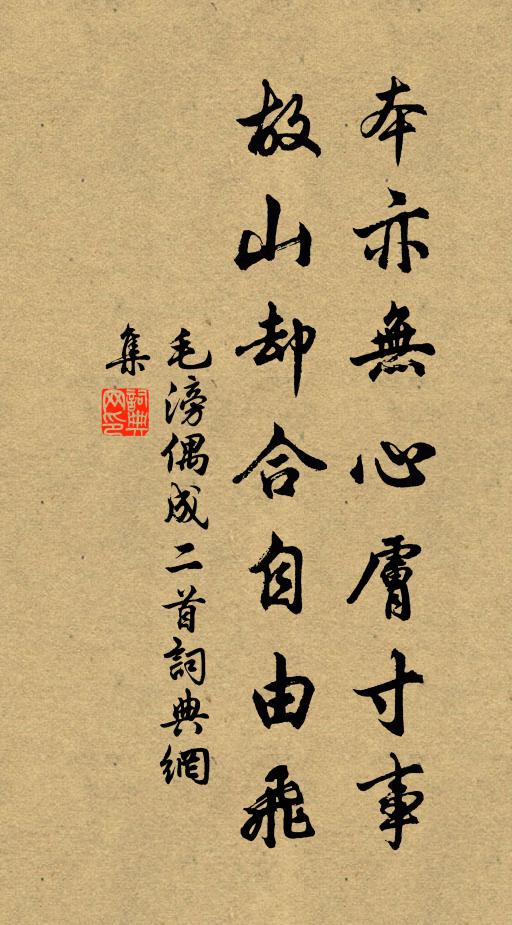 本亦無心膚寸事
故山却合自由飛
毛滂偶成二首詞典網
集
詞典
网印